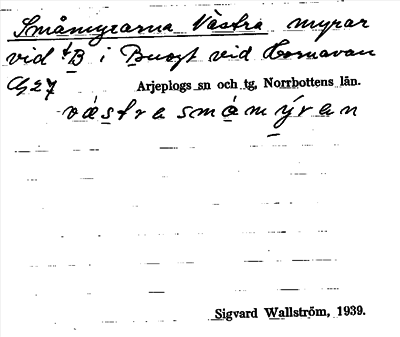 Småmyrarna Västra myrar
vid B i Buogt vid Hornavan
G27 Arjeplogs sn och tg, Norrbottens län.
västra småmýran
Sigvard Wallström, 1939.